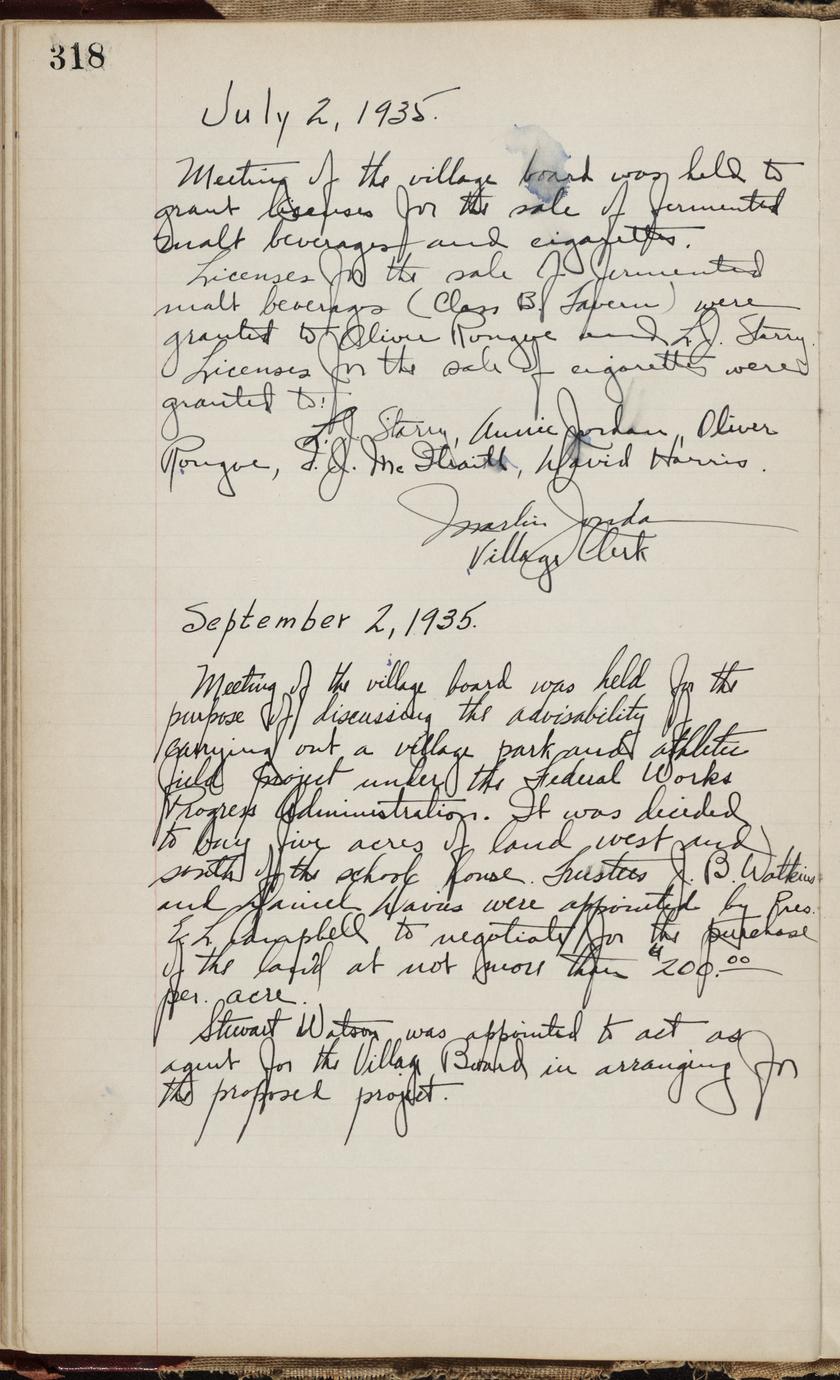 318
July 2, 1935.
Meeting of the village board was held to
grant licenses for the sale of fermented
malt beverages and cigarettes.
Licenses for the sale of fermented
malt beverags (Class B, Tavern) were
granted to Oliver Rongve and L.J. Starry.
Licenses for the sale of cigarettes were
granted to:
L.J. Starry, Annie Jordan, Oliver
Rongve, F.J. Mc Ilraith, David Harris.
Marlin
Village Clerk
September 2, 1935.
Meeting of the village board was held for the
purpose of discussing the advisability of
carrying out a village park and athletic
field project under the Federal Works
Progress Administration. It was decided
to buy five acres of land west and
south of the school house. Trustees J. B. Watkins
and Daniel Davies were appointed by Pres.
E L Campbell to negotiate for the purchase
of the land at not more than $200.00
per. acre.
Stewart Watson was appointed to act as
agent for the Village Board in arranging for
the proposed project.